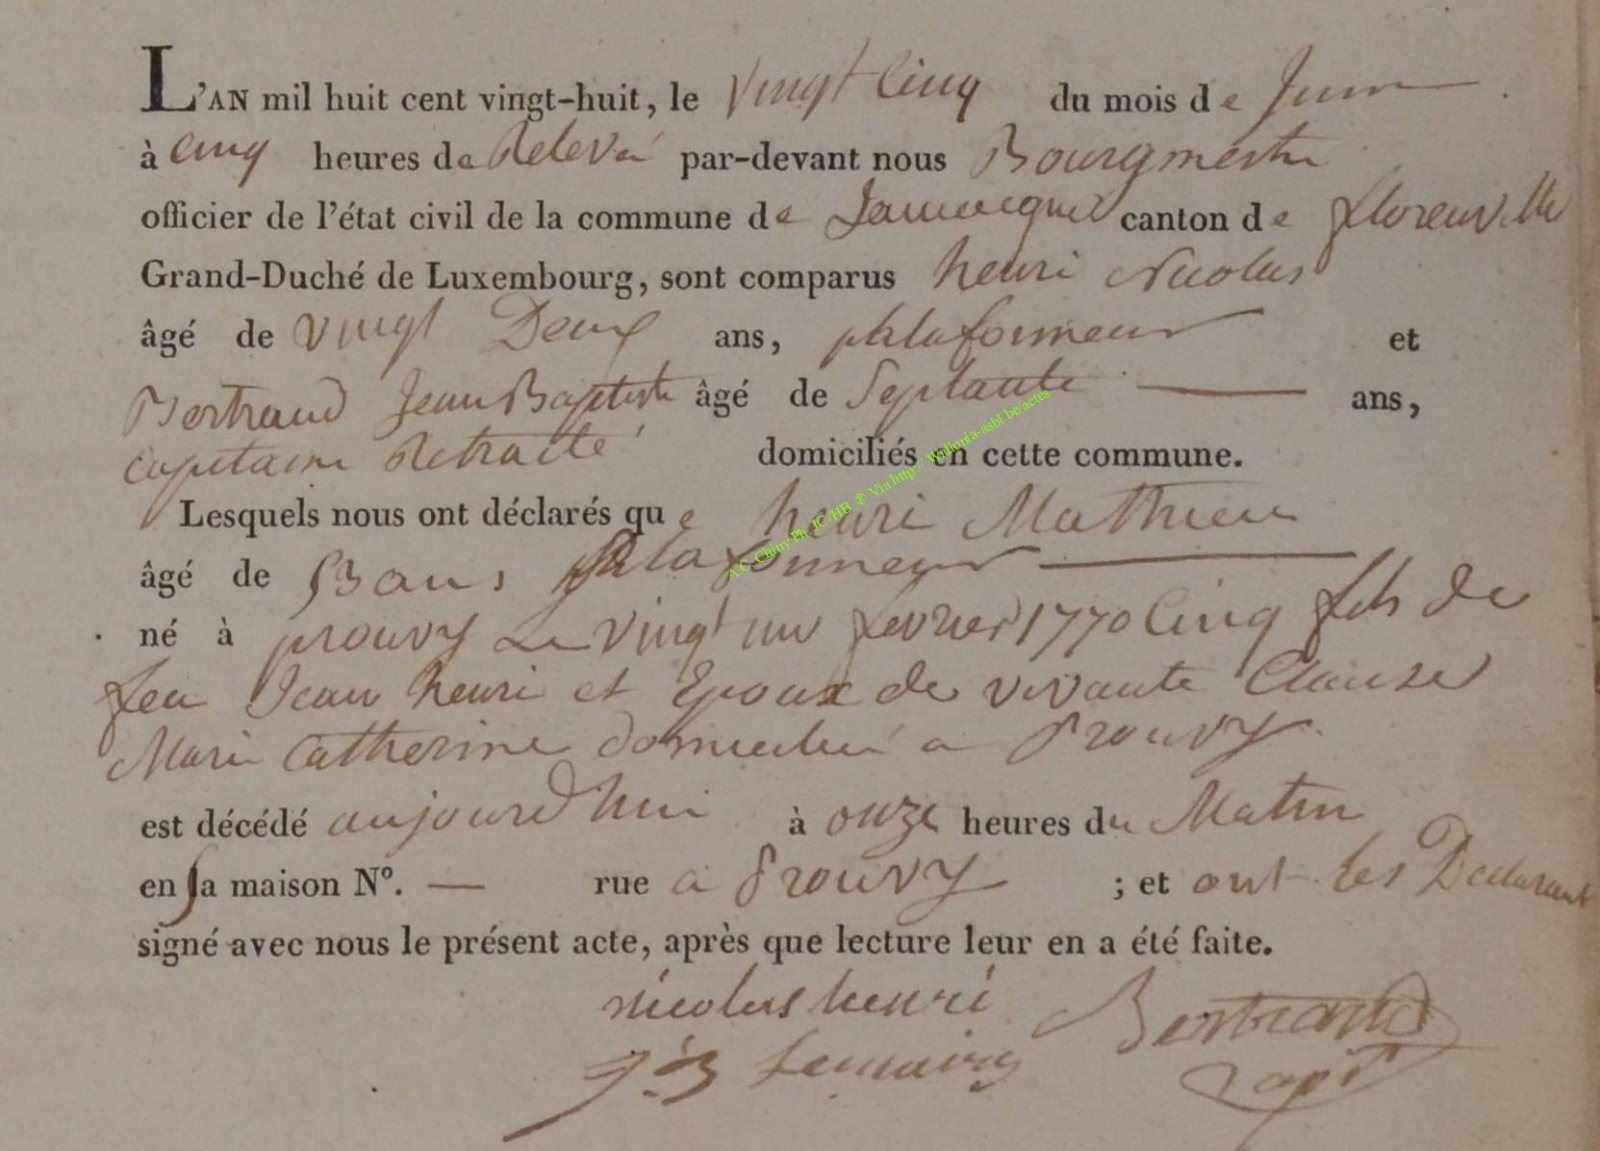 L'AN mil huit cent vingt-huit, le vingt Cinq du mois de Juin
à cinq heures de Relevé par-devant nous Bourgmestre
officier de l'état civil de la commune de Jamoigne canton de florenville
Grand-Duché de Luxembourg, sont comparus henri Nicolas
âgé de vingt Deux ans, plafonneur et
Bertrand Jean Baptiste âgé de Septante ans,
Capitaine Retraité domiciliés en cette commune.
Lesquels nous ont déclarés que henri Mathieu
âgé de 53 ans plafonneur
né à prouvy Le vingt un fevrier 1770 Cinq fils de
feu Jean henri et Epoux de vivante Clause
Marie Catherine domicilié a Prouvy
est décédé aujourd'hui à onze heures du Matin
en sa maison N°. — rue a Prouvy ; et ont les Declarant
signé avec nous le présent acte, après que lecture leur en a été faite.
nicolas henri Bertrand
Lemaire capt
A.C. Chiny Ph. JC HB ® Via http://Wallonia-asbl.be/actes